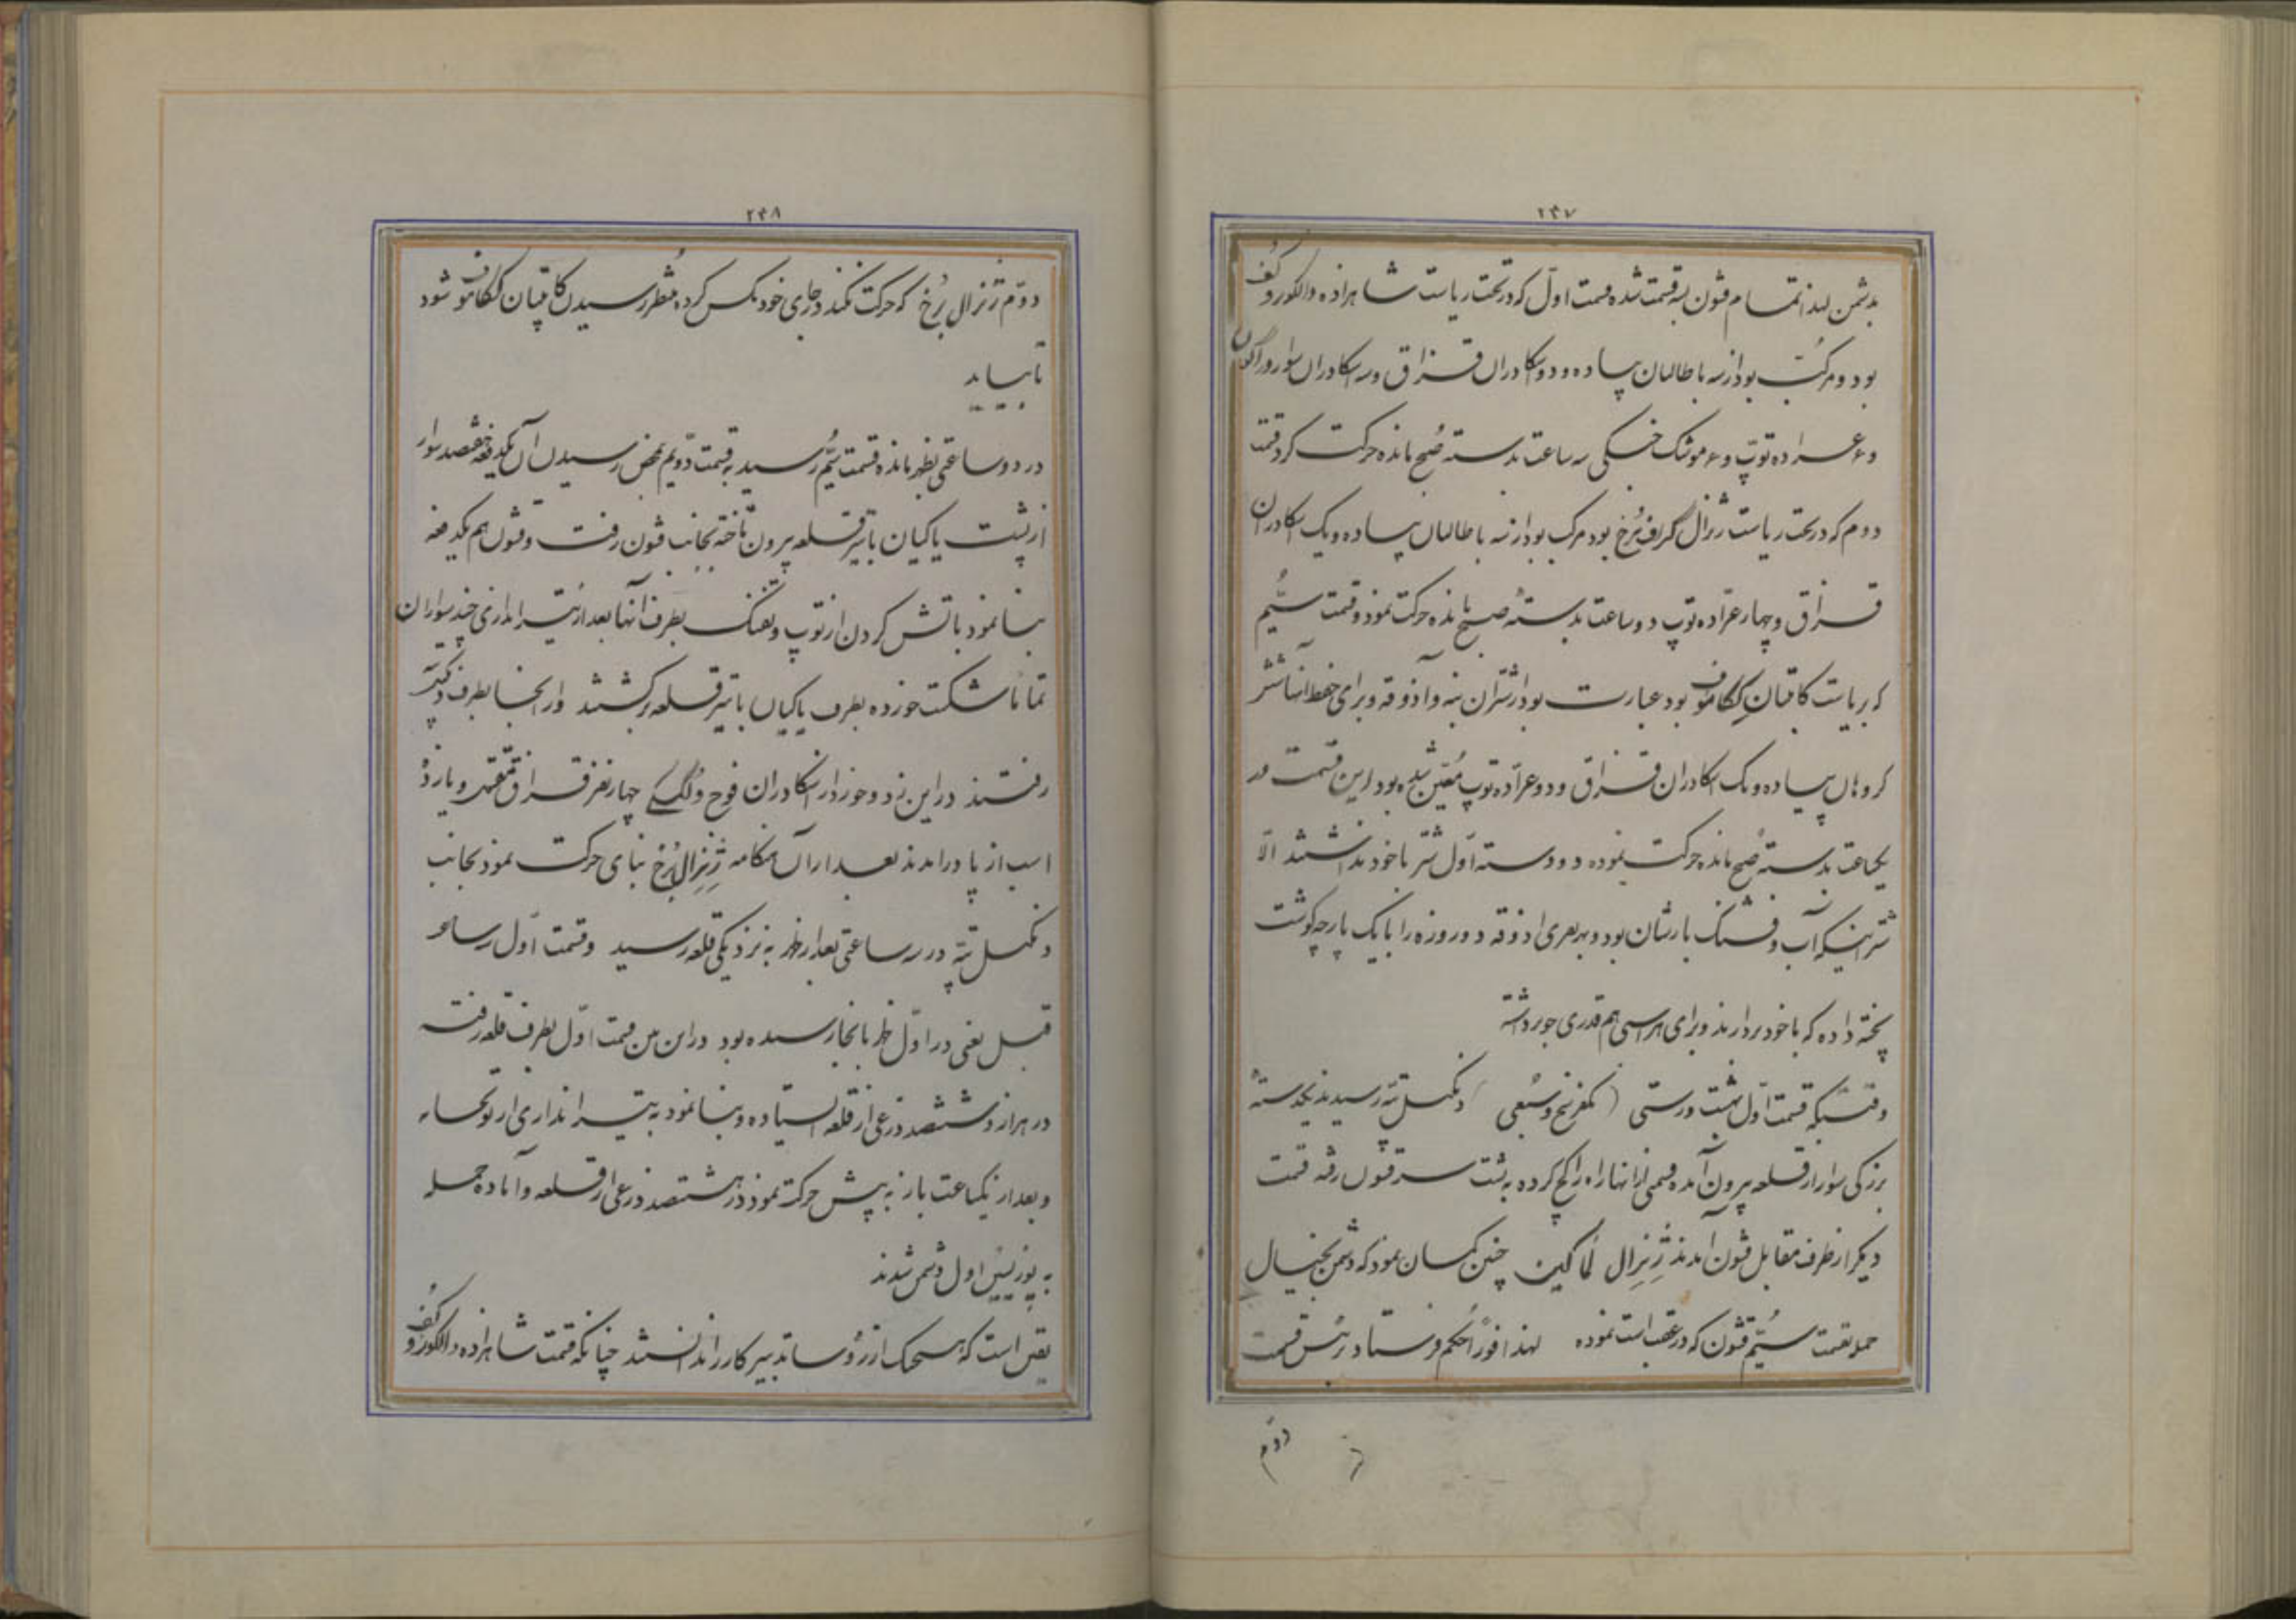 ۲۴۷
بدشمن لهذا تمام قشون بسه قسمت شده قسمت اوّل که در تحت ریاست شاهزاده دالکوروکف
بود و مرکّب بود از سه باطالیان پیاده و دو اسکادران قزاق و سه اسکادران سوار دراگون
و ۶ عراده توپ و ۶ موشک جنگی سه ساعت بدسته صُبح مانده حرکت کرد قسمت
دوم که در تحت ریاست ژنرال گراف بُرخ بود مرکب بود از سه باطالیان پیاده و یک اسکادران
قزاق و چهار عرّاده توپ دو ساعت بدستهٔ صبح مانده حرکت نمود و قسمت سیُّم
که بریاست کاپتان کلکاموف بود عبارت بود از شتران بنه و آذوقه و برای حفظ آنها شش
گروهان پیاده و یک اسکادران قزاق و دو عرّاده توپ مُعیّن شده بود این قسمت در
یکساعت بدسته صبح مانده حرکت نموده و دو دسته اوّل شتر با خود نداشتند الّا
شتر اینکه آب و فشنگ بارشان بود و بهر نفری آذوقه دو روزه را با یک پارچه گوشت
پخته داده که با خود بردارند و برای هر اسبی هم قدری جو برداشته
وقتیکه قسمت اوّل بهشت ورستی ( یکفرسخ و سُبعی ) دنگل تپّه رسیدند یکدستهٔ
بزرگی سوار از قلعه بیرون آمده قسمی از آنها راه را کج کرده به پشت سر قشون رفته قسمت
دیگر از طرف مقابل قشون آمدند ژِنِرال لُماکین چنین گمان نمود که دشمن بخیال
حمله بقسمت سیُّم قشون که در عقب است نموده لهذا فوراً حُکم فرستاد رئیس قسمت
دوّم
۲۴۸
دوّم ژنرال بُرخ که حرکت نکند و در جای خود مکس کرده مُنتظر رسیدن کاپتان کلکاموف شود
تا بیاید
در دو ساعتی بظهر مانده قسمت سیُّم رسید به قسمت دوّیم بمحض رسیدن آن یکدفعه هفتصد سوار
از پشت یاکیان باتیر قلعه بیرون تاخته بجانب قشون رفت و قشون هم یکدفعه
بنا نمود باتش کردن از توپ و تفنگ بطرف آنها بعد از تیر اندازی چند سواران
تماماً شکست خورده بطرف یاکیان باتیر قلعه برگشتند و از آنجا بطرف دنگل تپه
رفتند در این زد و خورد از اسکادران فوج ولگسکی چهار نفر قزاق مقتول و یازدهٔ
اسب از پا درآمدند بعد از آن هنگامه ژِنِرال بُرخ بنای حرکت نمود بجانب
دنگل تپّه در سه ساعتی بعد از ظهر به نزدیکی قلعه رسید و قسمت اوّل سه ساعت
قبل یعنی در اوّل ظهر بانجا رسیده بود در این بین قسمت اوّل بطرف قلعه رفته
در هزار و ششصد ذرعی از قلعه ایستاده و بنا نمود به تیر اندازی از توپخانه
و بعد از یکساعت باز به پیش حرکت نمود در هشتصد ذرعی از قلعه و آماده حمله
به پوزیسین اول دشمن شدند
یقین است که هیچیک از رؤسا تدبیر کار را ندانستند چنانکه قسمت شاهزاده دالکوروکف